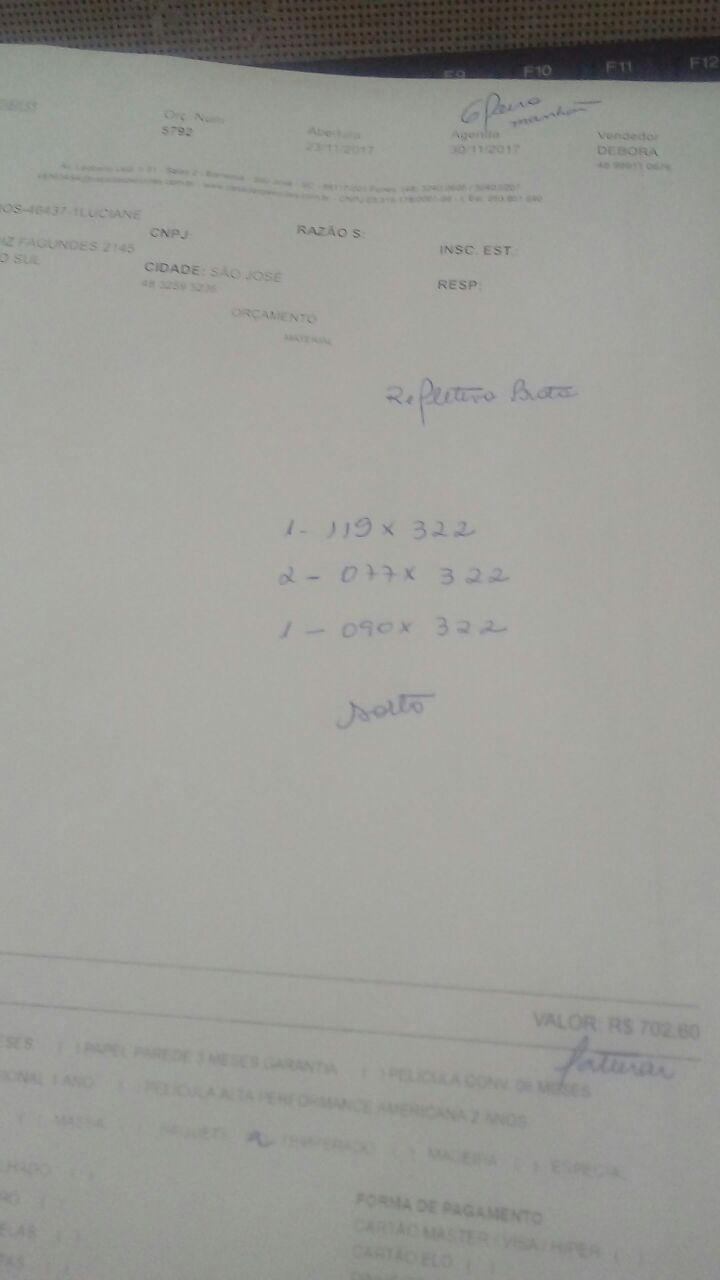 F9 F10 F11 F12
manhã
Orç. Num
5792
Abertura
23/11/2017
Agenda
30/11/2017
Vendedor
DEBORA
OS-46437-1LUCIANE
IZ FAGUNDES 2145
O SUL
CNPJ:
RAZÃO S:
INSC. EST.:
CIDADE: SÃO JOSÉ
48 3259 5236
RESP:
ORÇAMENTO
MATERIAL
Refletivo Prata
1- 119 x 322
2 - 077 x 322
1 - 090 x 322
VALOR: R$ 702,60
faturar
ESES ( ) PAPEL PAREDE 3 MESES GARANTIA ( ) PELÍCULA CONV. 06 MESES
IONAL 1 ANO ( ) PELÍCULA ALTA PERFORMANCE AMERICANA 2 ANOS
( ) MASSA ( ) TEMPERADO ( ) MADEIRA ( ) ESPECIAL
LHADO ( )
RO ( )
ELAS ( )
TAS ( )
FORMA DE PAGAMENTO
CARTÃO MASTER / VISA / HIPER ( )
CARTÃO ELO ( )